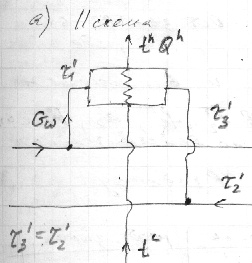 а) II схема
tʰ Qʰ
τ₁'
Gω
τ₃'
τ₂'
τ₃' = τ₂'
tᶜ